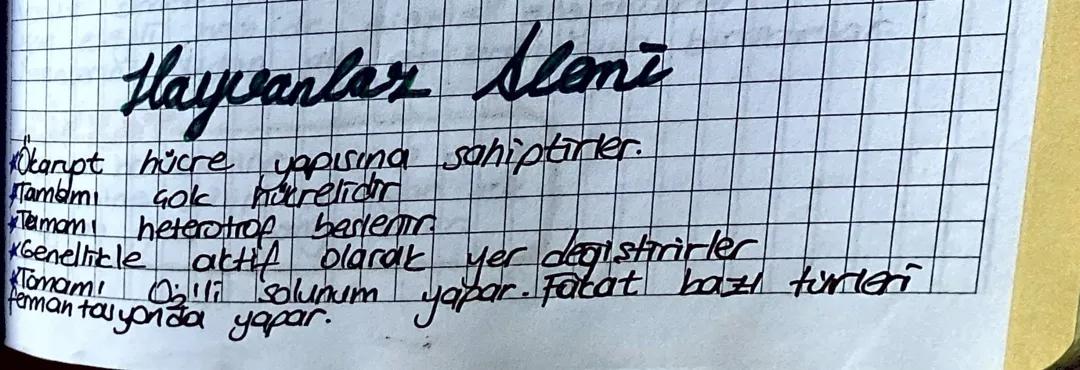 Hayvanlar Alemi
*Ökaryot hücre yapısına sahiptirler.
*Tamamı çok hücrelidir
*Tamamı heterotrof beslenir.
*Genellikle aktif olarak yer değiştirirler
*Tamamı O₂'li solunum yapar. Fakat bazı türleri
fermantasyonda yapar.